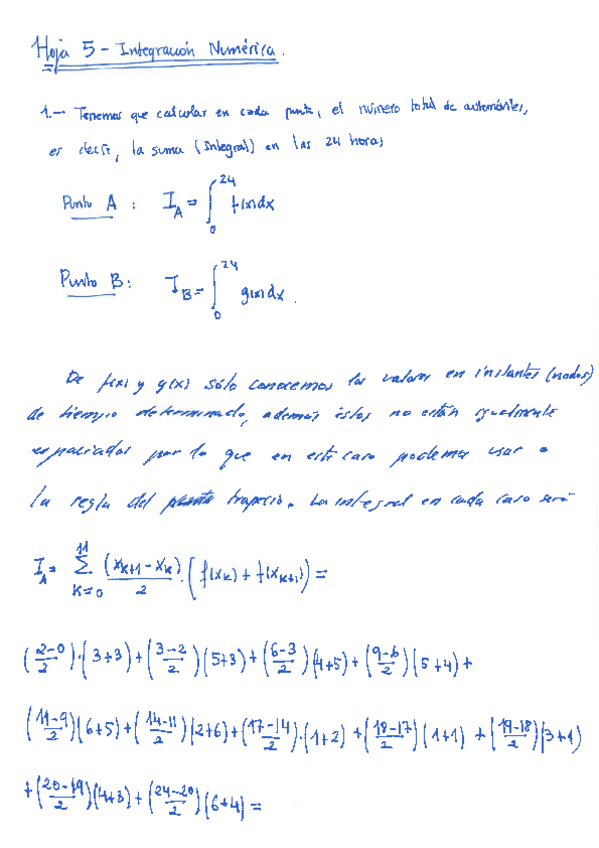 Hoja 5 - Integración Numérica.
1.- Tenemos que calcular en cada punto, el número total de automóviles,
es decir, la suma (integral) en las 24 horas
Punto A : I_A = ∫_0^24 f(x)dx
Punto B: I_B = ∫_0^24 g(x)dx.
De f(x) y g(x) sólo conocemos los valores en instantes (nodos)
de tiempo determinado, además éstos no están igualmente
espaciados por lo que en este caso podemos usar
la regla del trapecio. La integral en cada caso será
I_A = ∑_{K=0}^{11} (x_{K+1} - x_K)/2 · (f(x_K) + f(x_{K+1})) =
((2-0)/2)·(3+3) + ((3-2)/2)(5+3) + ((6-3)/2)(4+5) + ((9-6)/2)(5+4) +
((11-9)/2)(6+5) + ((14-11)/2)(2+6) + ((17-14)/2)·(1+2) + ((18-17)/2)(1+1) + ((19-18)/2)(3+1)
+ ((20-19)/2)(4+3) + ((24-20)/2)(6+4) =